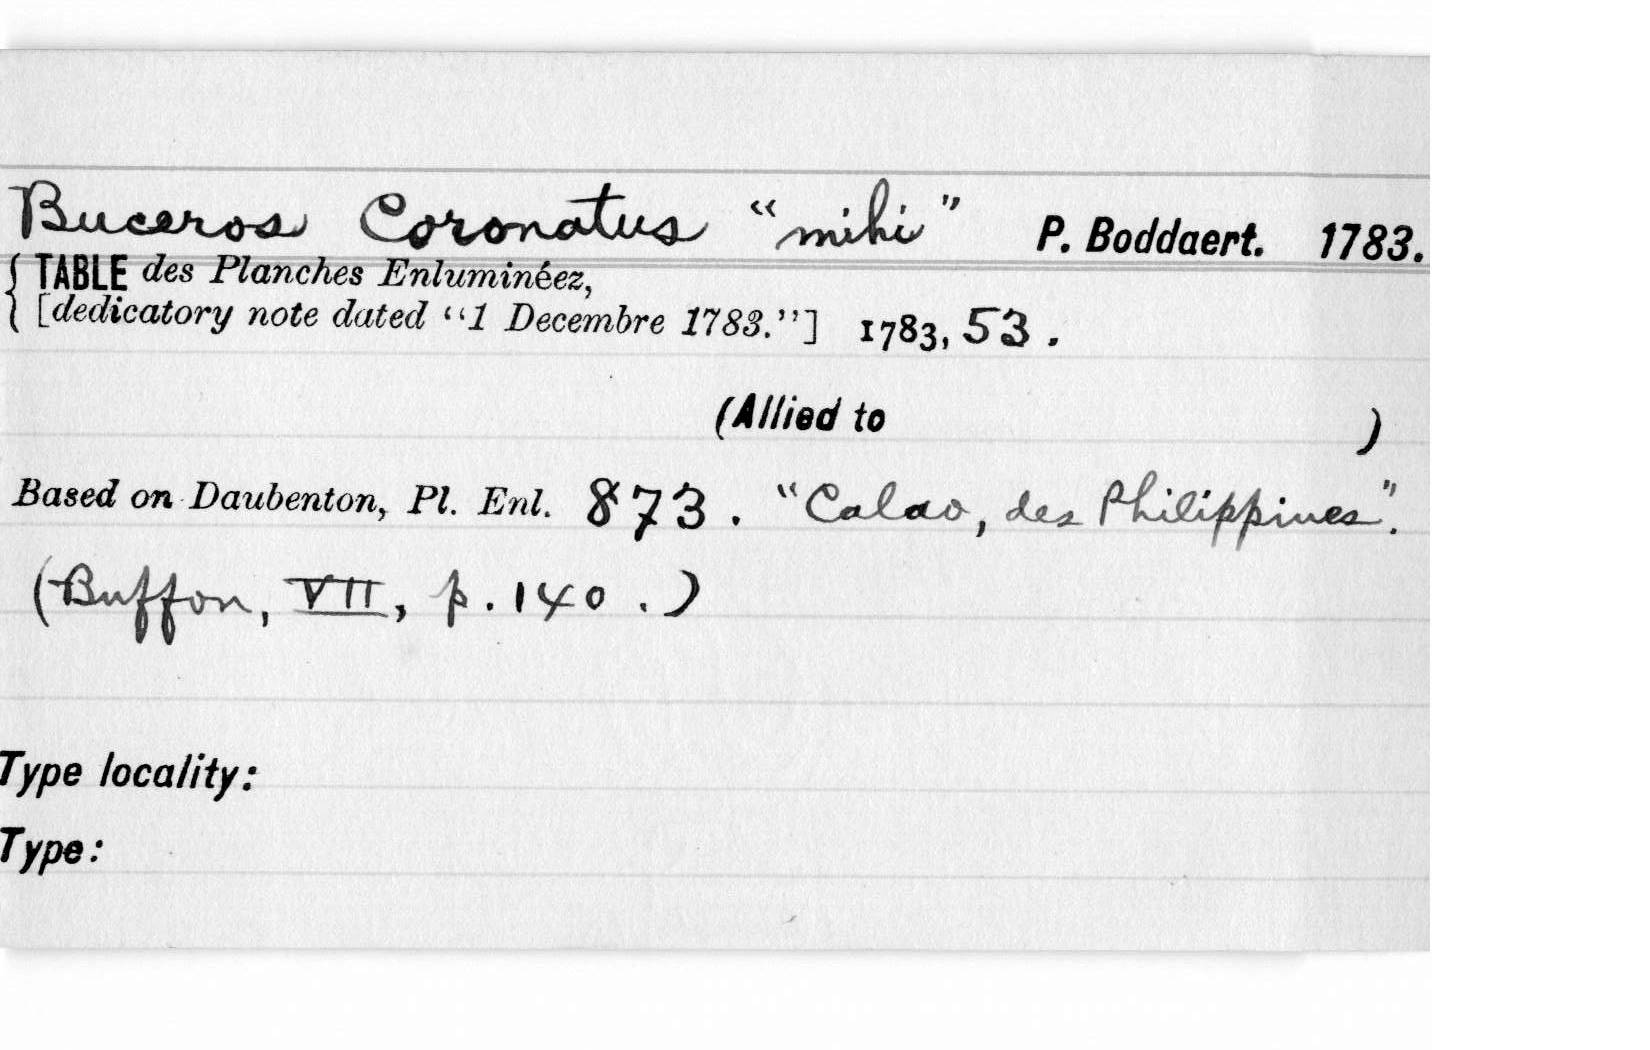 Buceros Coronatus "mihi" P. Boddaert. 1783.
{ TABLE des Planches Enluminéez,
[dedicatory note dated "1 Decembre 1783."] 1783, 53.
(Allied to )
Based on Daubenton, Pl. Enl. 873. "Calao, des Philippines".
(Buffon, VII, p. 140.)
Type locality:
Type: